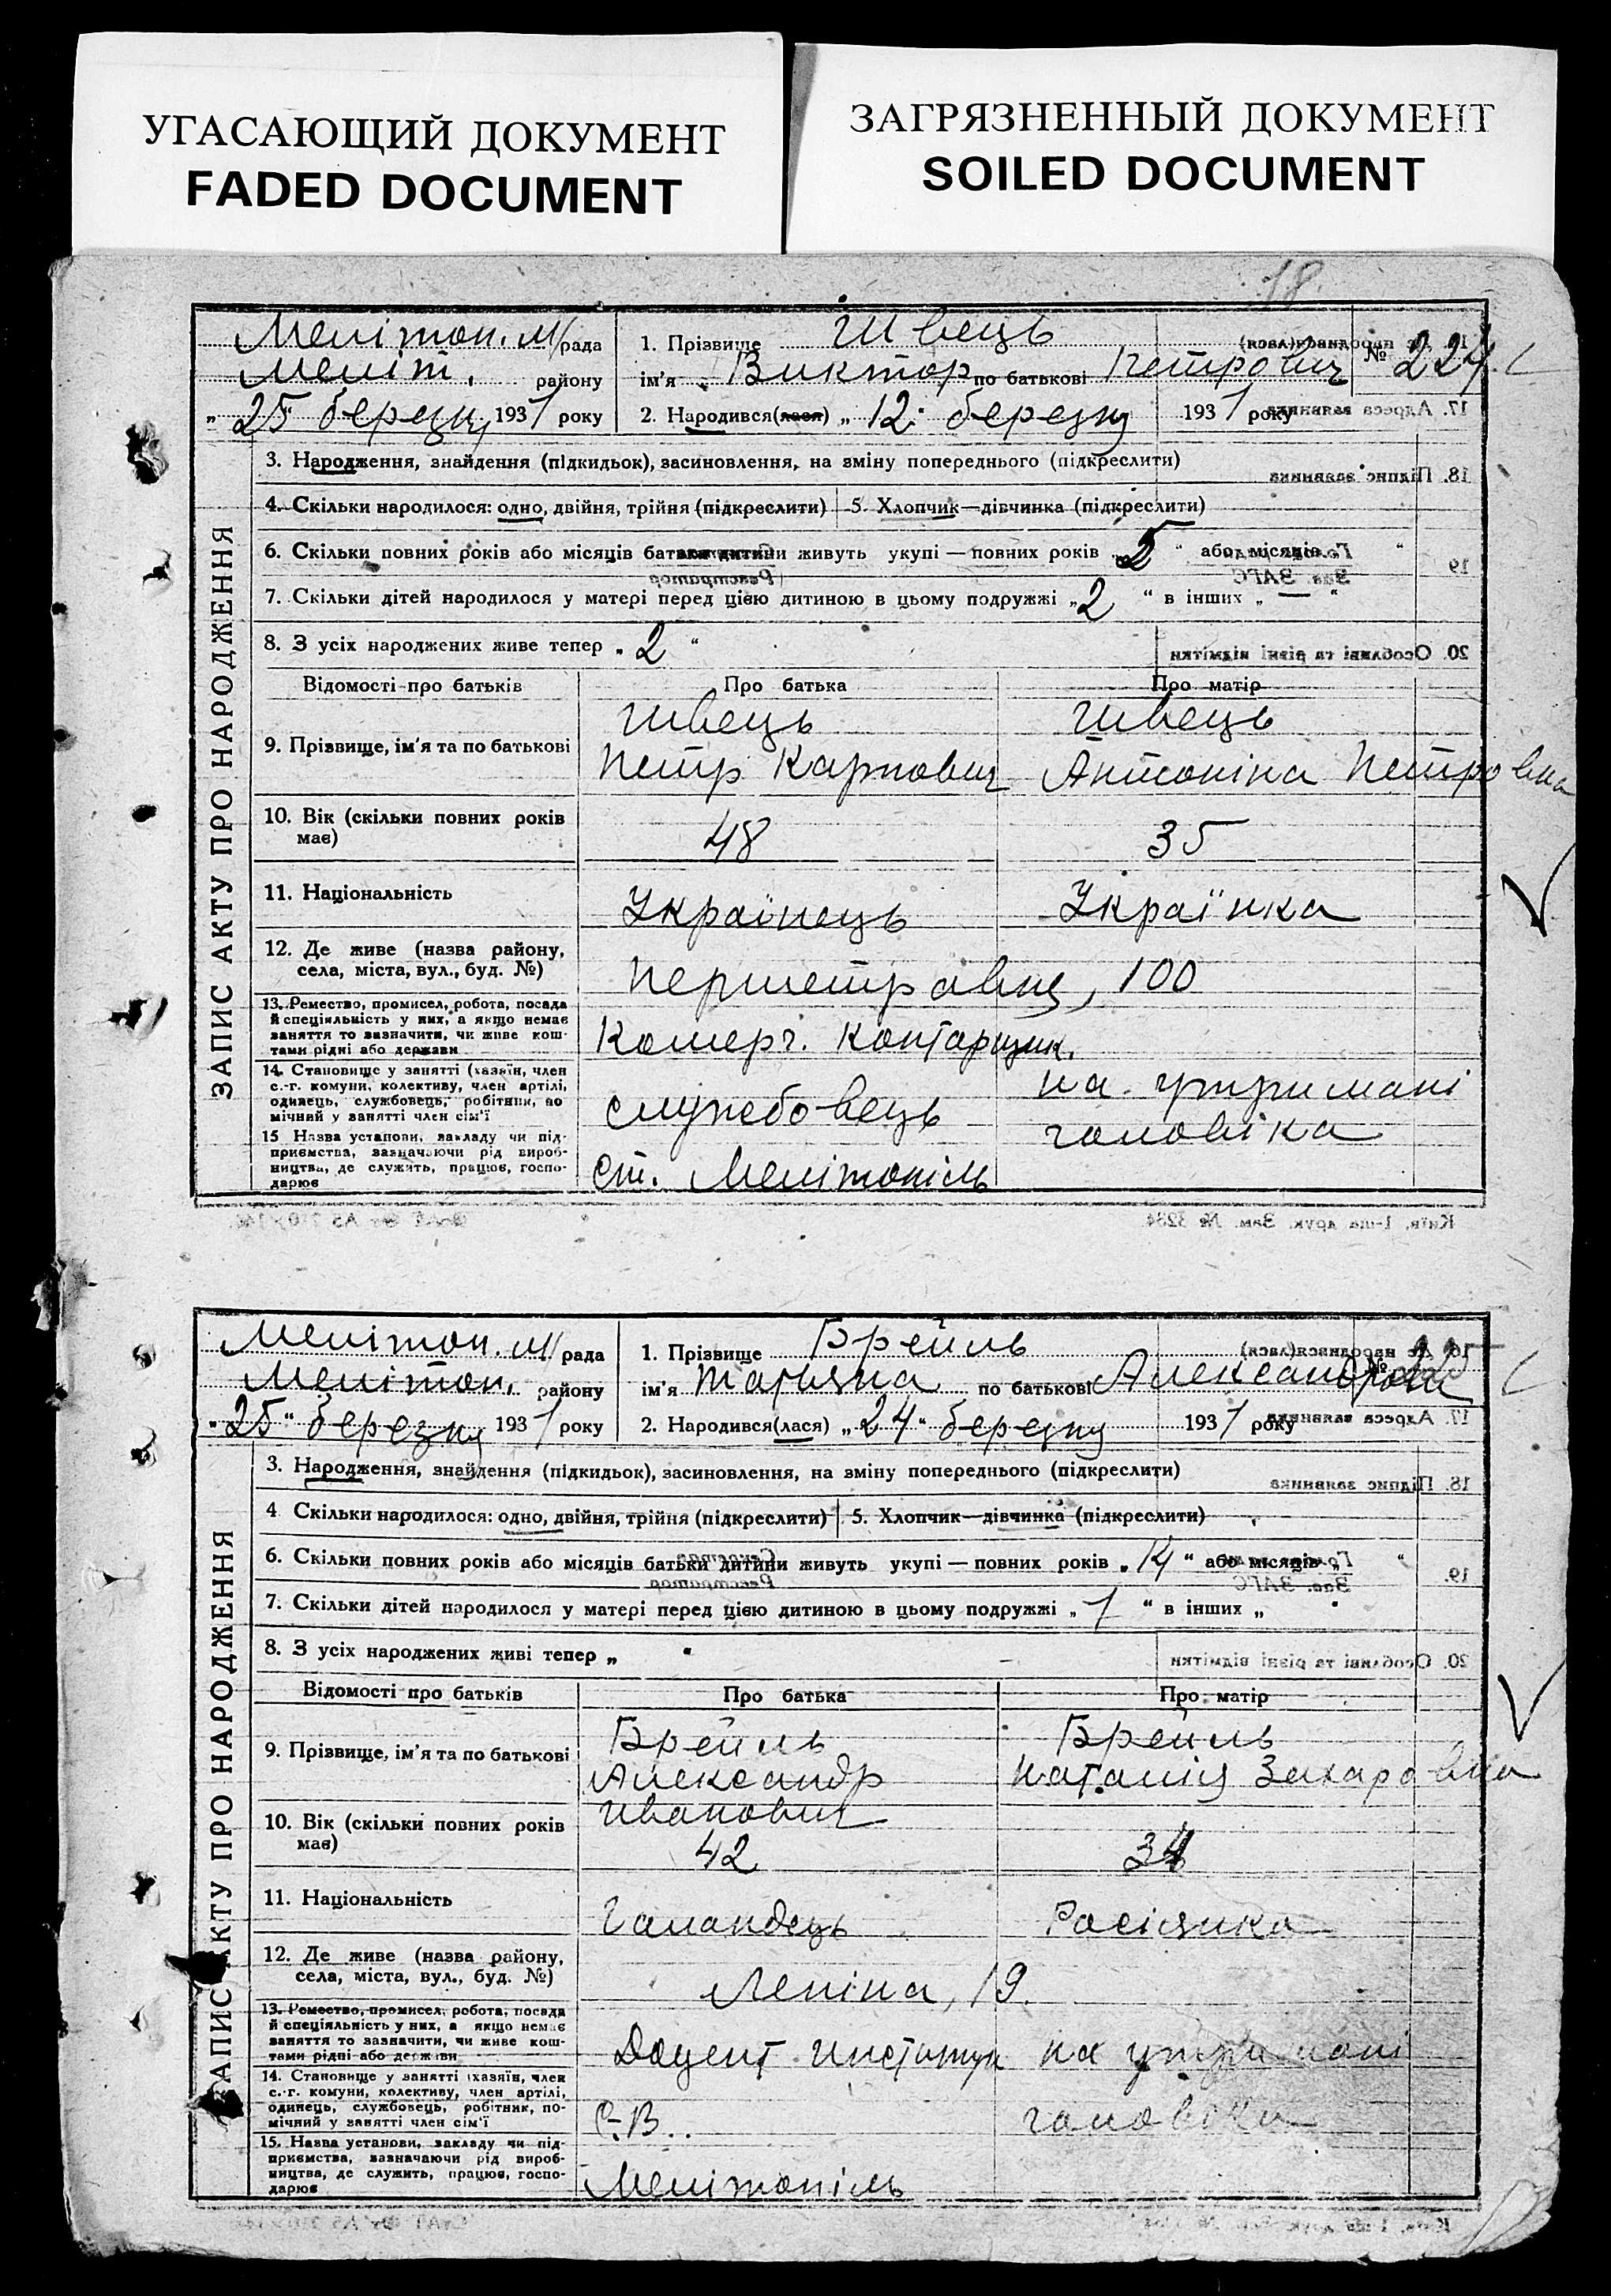 УГАСАЮЩИЙ ДОКУМЕНТ
FADED DOCUMENT
ЗАГРЯЗНЕННЫЙ ДОКУМЕНТ
SOILED DOCUMENT
18.
ЗАПИС АКТУ ПРО НАРОДЖЕННЯ
Мелітоп. М/рада
Меліт. району
„25“ березня 1931 року
1. Прізвище Швець
ім'я Виктор по батькові Петрович
№ 224
2. Народився(лася) „12“ березня 1931 року
3. Народження, знайдення (підкидьок), засиновлення, на зміну попереднього (підкреслити)
4. Скільки народилося: одно, двійня, трійня (підкреслити) 5. Хлопчик—дівчинка (підкреслити)
6. Скільки повних років або місяців батьки дитини живуть укупі — повних років „5“ або місяців „ “
7. Скільки дітей народилося у матері перед цією дитиною в цьому подружжі „2“ в інших „—“
8. З усіх народжених живе тепер „2“
Відомості про батьків Про батька Про матір
9. Прізвище, ім'я та по батькові
Швець
Петр Карпович
Швець
Антоніна Петровна
10. Вік (скільки повних років має)
48
35
11. Національність
Українець
Українка
12. Де живе (назва району,
села, міста, вул., буд. №)
Першетравня, 100
13. Ремество, промисел, робота, посада
й спеціяльність у них, а якщо немає
заняття то зазначити, чи живе кош-
тами рідні або держави
Комерч. Контарщик.
14. Становище у занятті (хазяїн, член
с.-г. комуни, колективу, член артілі,
одинець, службовець, робітник, по
мічний у занятті член сім'ї
службовець
на утримані
головіка
15 Назва установи, закладу чи під-
приємства, зазначаючи рід вироб-
ництва, де служить, працює, госпо-
дарює
ст. Мелітопіль
16. Де народився(лася)
17. Адреса заявника
18. Підпис заявника
19
Зав. ЗАГС
Реєстратор
20. Особливі та різні відмітки
Київ, 1-ша друк. Зам. № 3234
ЗАПИС АКТУ ПРО НАРОДЖЕННЯ
Мелітоп. М/рада
Мелітоп. району
„25“ березня 1931 року
1. Прізвище Брейль
ім'я Татьяна по батькові Александровна
№ 225
2. Народився(лася) „24“ березня 1931 року
3. Народження, знайдення (підкидьок), засиновлення, на зміну попереднього (підкреслити)
4 Скільки народилося: одно, двійня, трійня (підкреслити) 5. Хлопчик—дівчинка (підкреслити)
6. Скільки повних років або місяців батьки дитини живуть укупі — повних років „14“ або місяців „ “
7. Скільки дітей народилося у матері перед цією дитиною в цьому подружжі „1“ в інших „ “
8. З усіх народжених живі тепер „ “
Відомості про батьків Про батька Про матір
9. Прізвище, ім'я та по батькові
Брейль
Александр
Иванович
Брейль
Наталія Захаровна
10. Вік (скільки повних років має)
42
34
11. Національність
Галандець
Расіянка
12. Де живе (назва району,
села, міста, вул., буд. №)
Леніна, 19.
13. Ремество, промисел, робота, посада
й спеціяльність у них, а якщо немає
заняття то зазначити, чи живе кош-
тами рідні або держави
Доцент Института
на утримані
головіка
14. Становище у занятті (хазяїн, член
с.-г. комуни, колективу, член артілі,
одинець, службовець, робітник, по-
мічний у занятті член сім'ї
С.В.
15. Назва установи, закладу чи під-
приємства, зазначаючи рід вироб-
ництва, де служить, працює, госпо-
дарює
Мелітопіль
16. Де народився(лася)
17. Адреса заявника
18. Підпис заявника
19.
Зав. ЗАГС
Секретар
Реєстратор
20. Особливі та різні відмітки